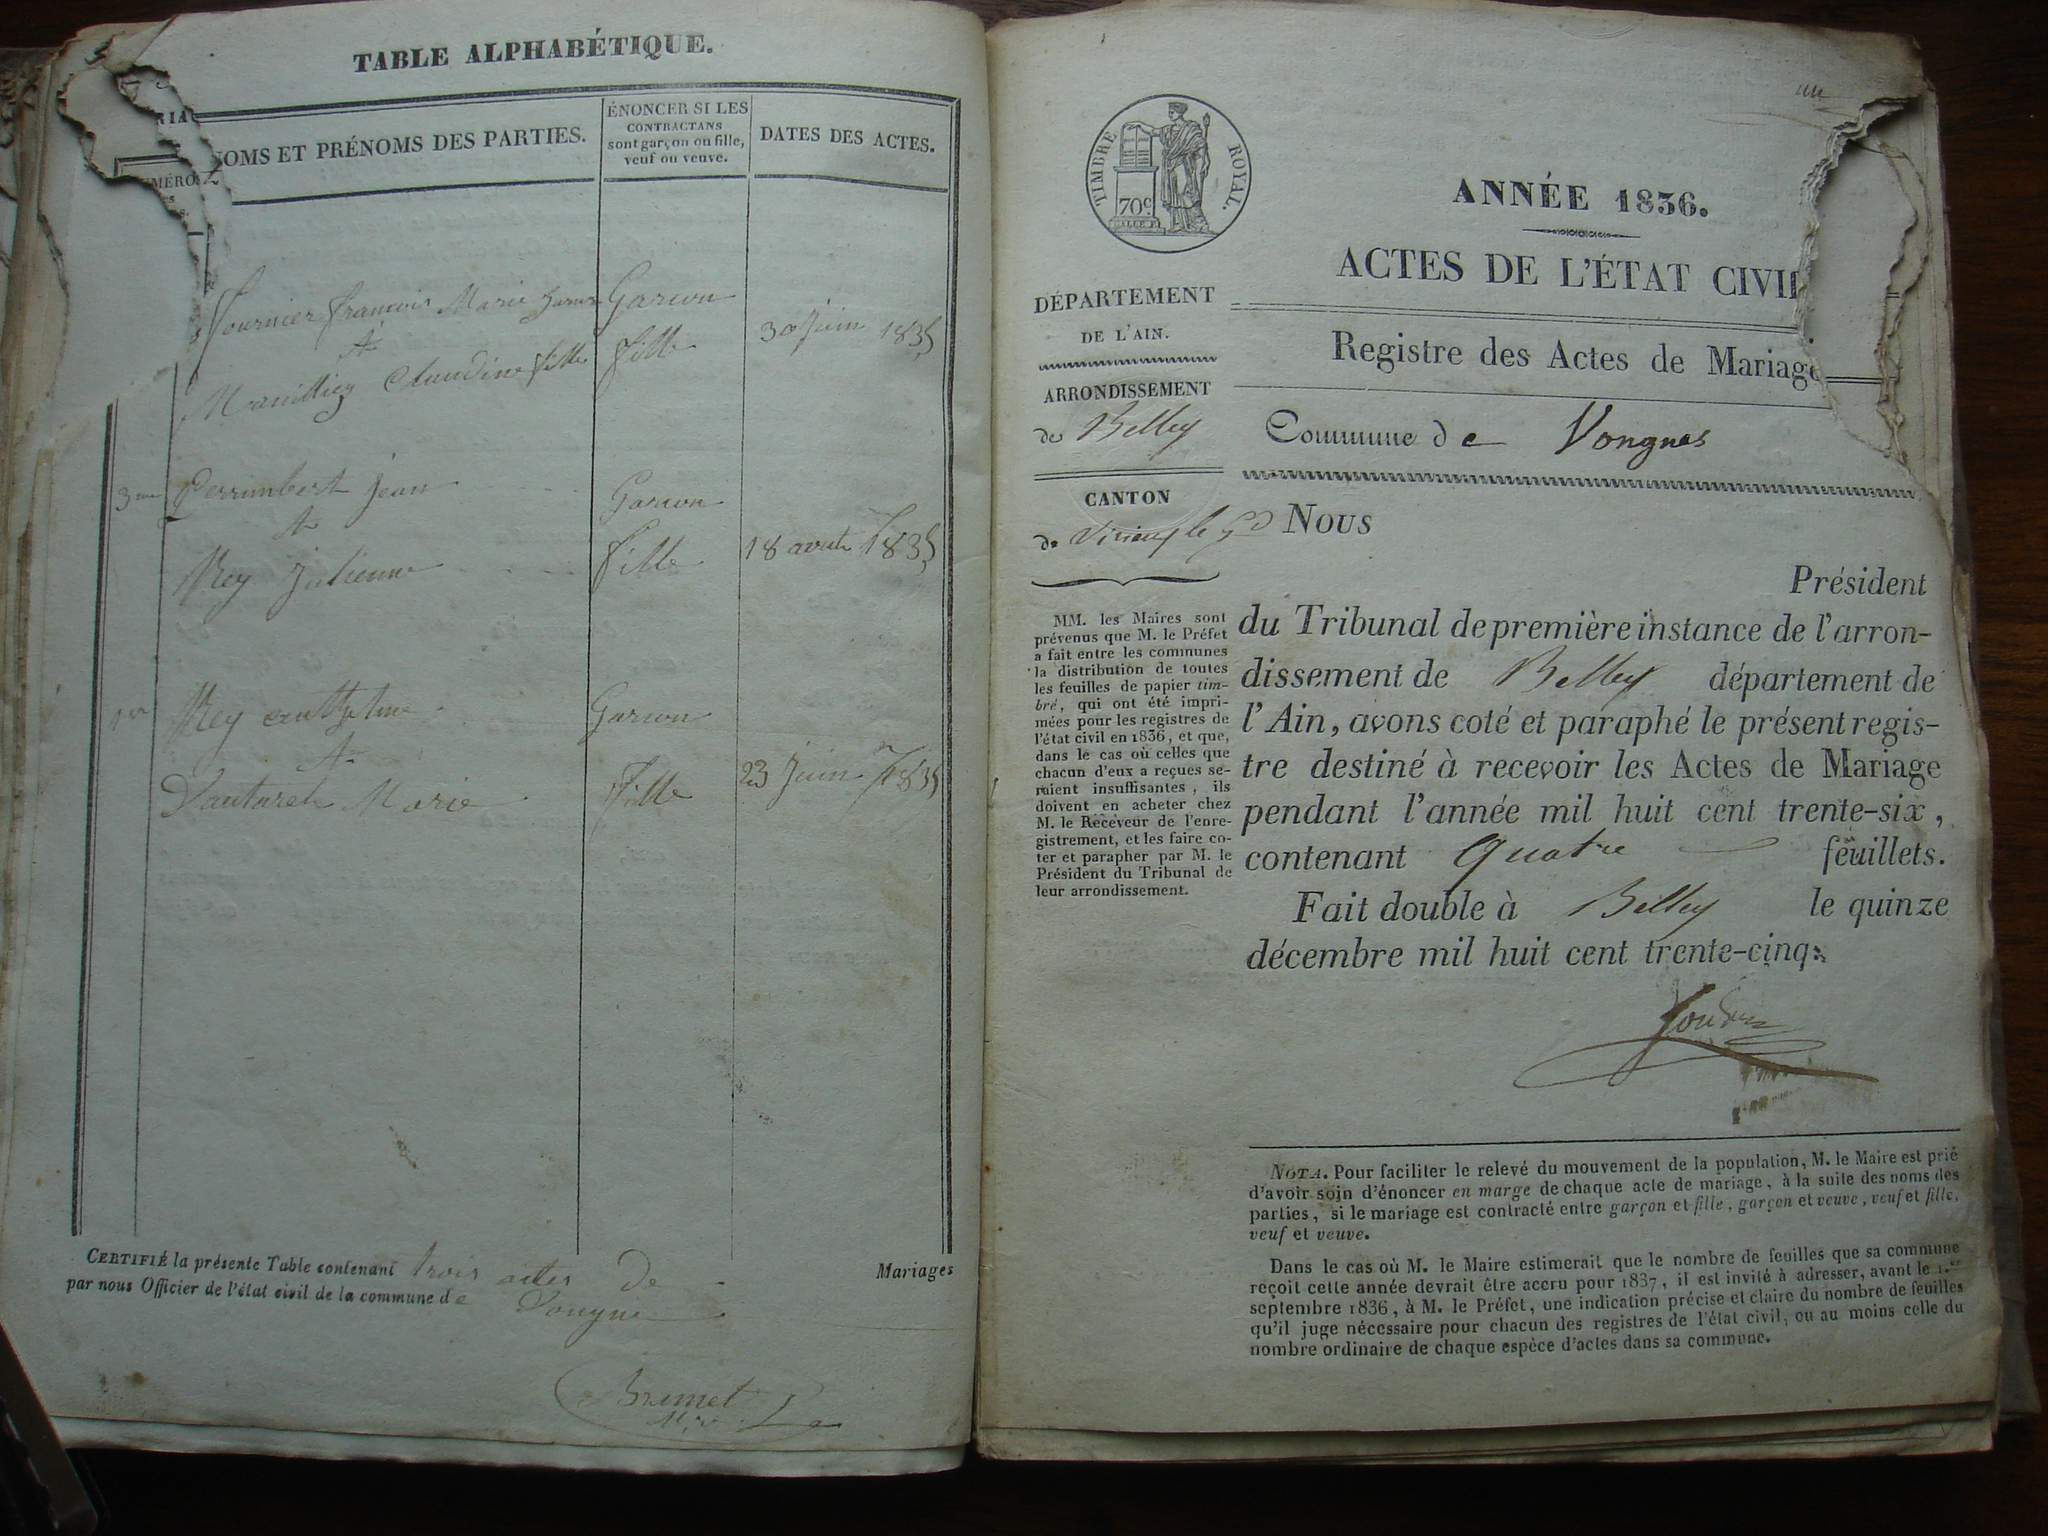 TABLE ALPHABÉTIQUE.
NOMS ET PRÉNOMS DES PARTIES.
ÉNONCER SI LES
CONTRACTANS
sont garçon ou fille,
veuf ou veuve.
DATES DES ACTES.
Fournier françois Marie Garçon
&
Claudine fille fille
30 juin 1835
3me Perrimbert Jean Garçon
&
Rey Julienne fille
18 août 1835
1er Rey Garçon
&
Marie fille
23 Juin 1835
CERTIFIÉ la présente Table contenant trois actes de Mariages
par nous Officier de l'état civil de la commune de Vongne
TIMBRE ROYAL.
70c
ANNÉE 1836.
ACTES DE L'ÉTAT CIVIL
Registre des Actes de Mariage
Commune de Vongnes
DÉPARTEMENT
DE L'AIN.
ARRONDISSEMENT
de Belley
CANTON
de Virieu le Gd
MM. les Maires sont
prévenus que M. le Préfet
a fait entre les communes
la distribution de toutes
les feuilles de papier tim-
bré, qui ont été impri-
mées pour les registres de
l'état civil en 1836, et que,
dans le cas où celles que
chacun d'eux a reçues se-
raient insuffisantes, ils
doivent en acheter chez
M. le Receveur de l'enre-
gistrement, et les faire co-
ter et parapher par M. le
Président du Tribunal de
leur arrondissement.
NOUS
Président
du Tribunal de première instance de l'arron-
dissement de Belley département de
l'Ain, avons coté et paraphé le présent regis-
tre destiné à recevoir les Actes de Mariage
pendant l'année mil huit cent trente-six,
contenant quatre feuillets.
Fait double à Belley le quinze
décembre mil huit cent trente-cinq.
NOTA. Pour faciliter le relevé du mouvement de la population, M. le Maire est prié
d'avoir soin d'énoncer en marge de chaque acte de mariage, à la suite des noms des
parties, si le mariage est contracté entre garçon et fille, garçon et veuve, veuf et fille,
veuf et veuve.
Dans le cas où M. le Maire estimerait que le nombre de feuilles que sa commune
reçoit cette année devrait être accru pour 1837, il est invité à adresser, avant le 1er
septembre 1836, à M. le Préfet, une indication précise et claire du nombre de feuilles
qu'il juge nécessaire pour chacun des registres de l'état civil, ou au moins celle du
nombre ordinaire de chaque espèce d'actes dans sa commune.